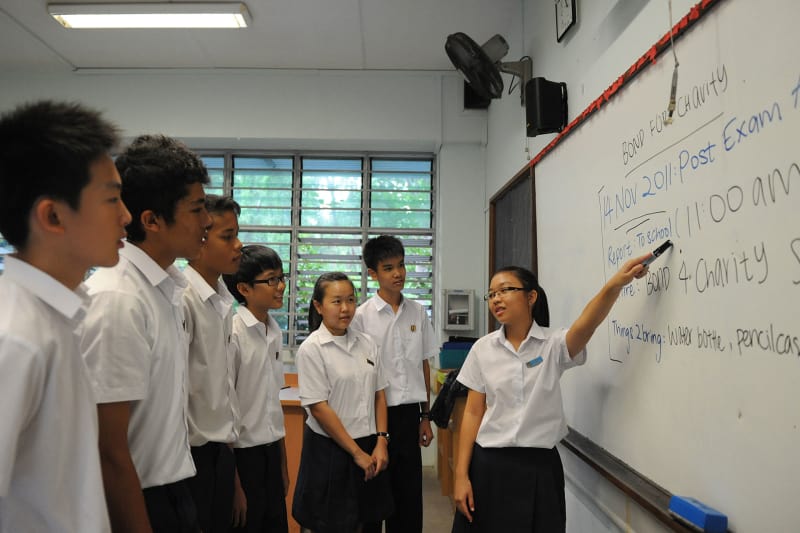 BOND FOR CHARITY
4 Nov 2011: Post Exam
Report: To school (11:00 am
BOND 4 Charity
Things 2 bring: Water bottle, pencilcas